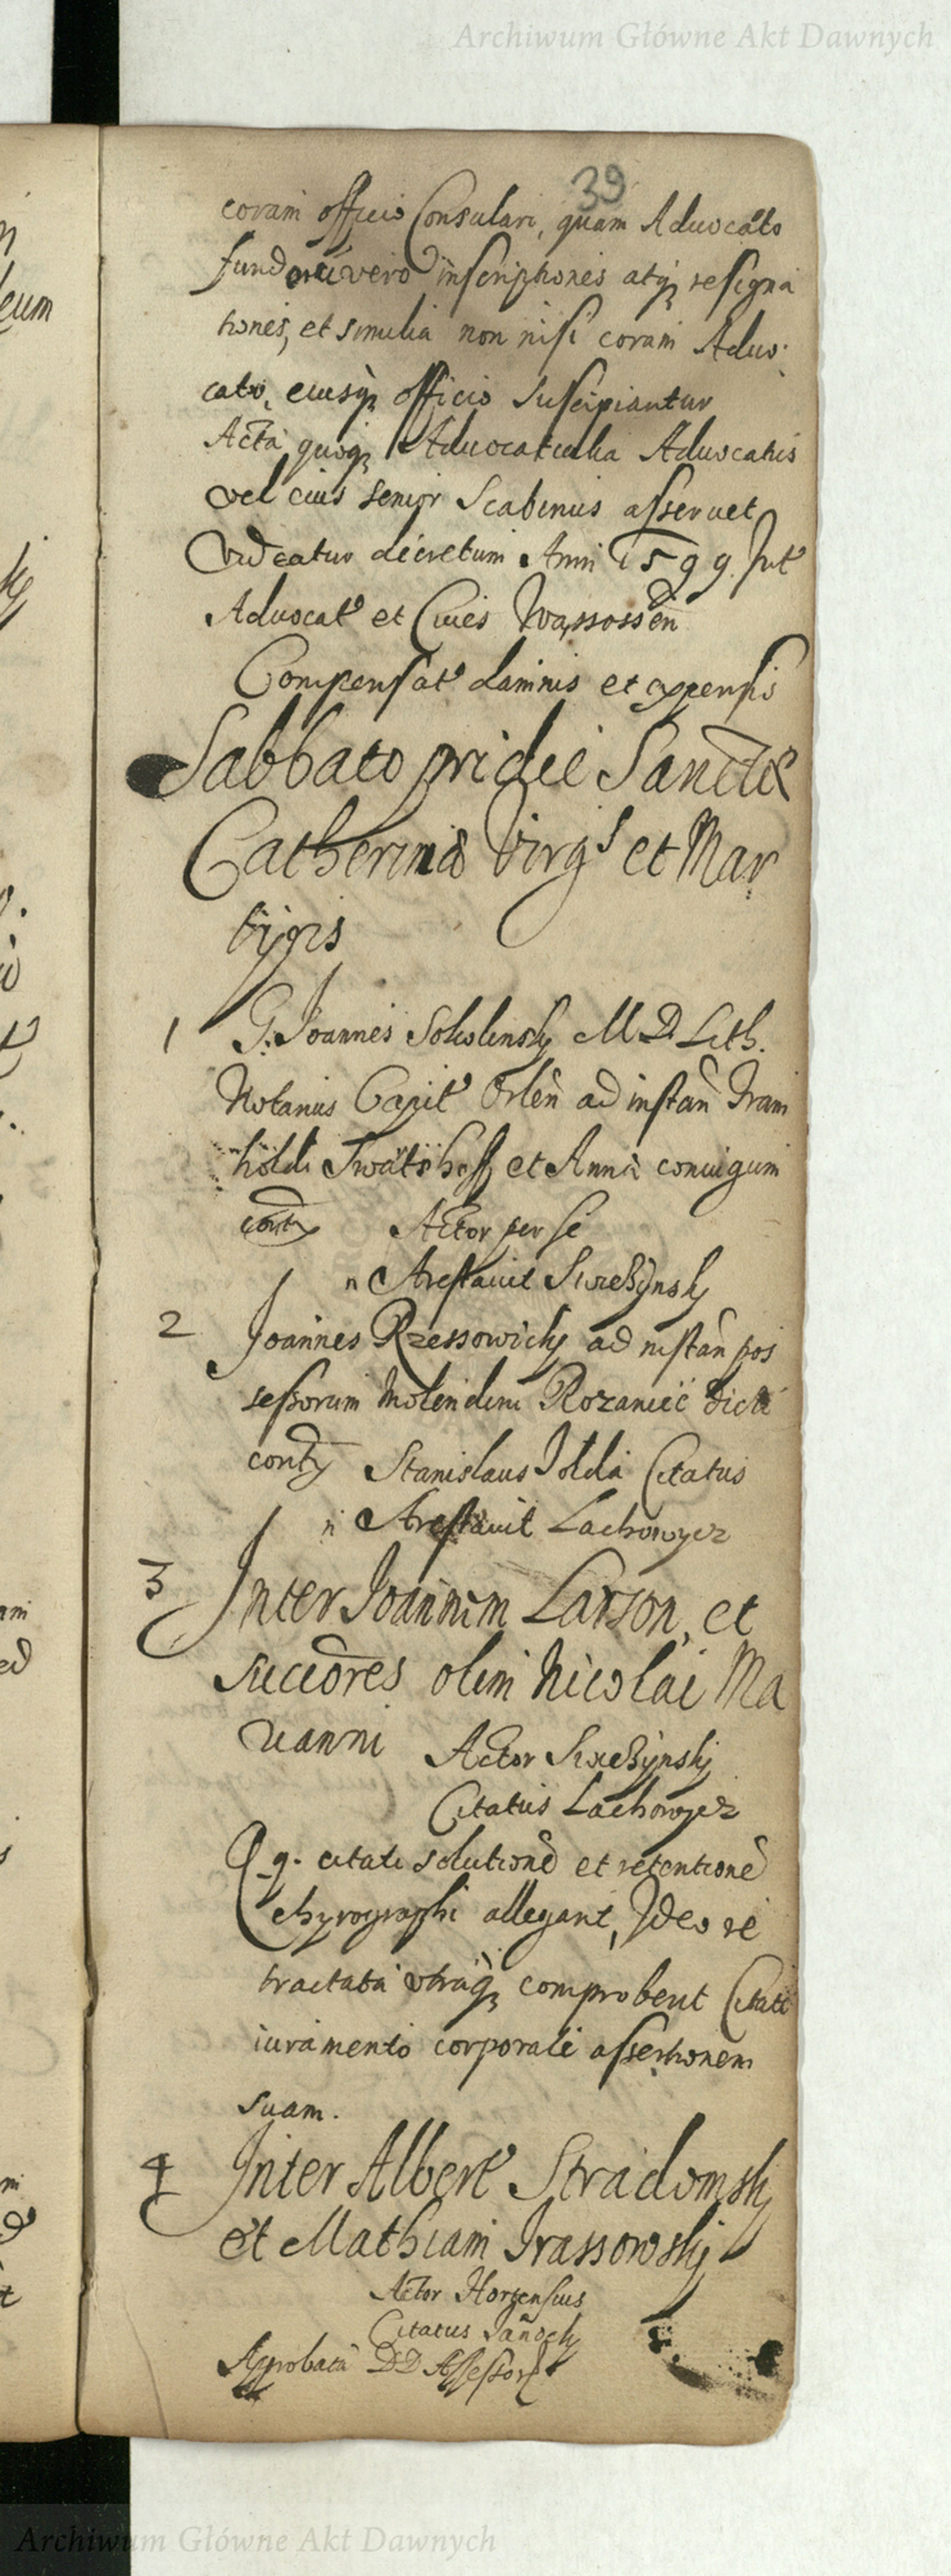 Archiwum Główne Akt Dawnych
39
coram officio Consulari, quam Aduocato
fundorū vero inscriptiones atq3 resigna
tiones, et similia non nisi coram Aduo:
cato, eiusq3 officio suscipiantur
Acta quoq3 Aduocatialia Aduocatus
vel eius senior Scabinus asseruet
Videatur decretum Anni 1599 Int
Advocat et Ciues Wąssossen
Compensat damnis et expensis
Sabbato pridie Sanctæ
Catherinæ Virgs et Mar
tyris
1 G. Joannes Sokolinsky M D Lith.
Notarius Capit Orlen ad instan Tram
holdi et Anna coniugum
contx Actor per se
n Arestauit Swiezynsky
2 Joannes Rzessowicky ad instan pos
sessorum Molendini Rozaniec dicti
contx Stanislaus Jolda Citatus
n Arestauit Lachowycz
3 Inter Joannem Larson, et
succōres olim Nicolai Ma
uanni Actor Swiezynskj
Citatus Lachowycz
Q. q. citati solutionē et retentionē
chyrographi allegant, Ideo re
tractata vtraq3 comprobent Citati
iuramento corporali assertionem
suam.
4 Inter Albert Stradomskj
et Mathiam Trassowskj
Actor Hortensius
Citatus Sanocky
Approbata DD Assessor
Archiwum Główne Akt Dawnych